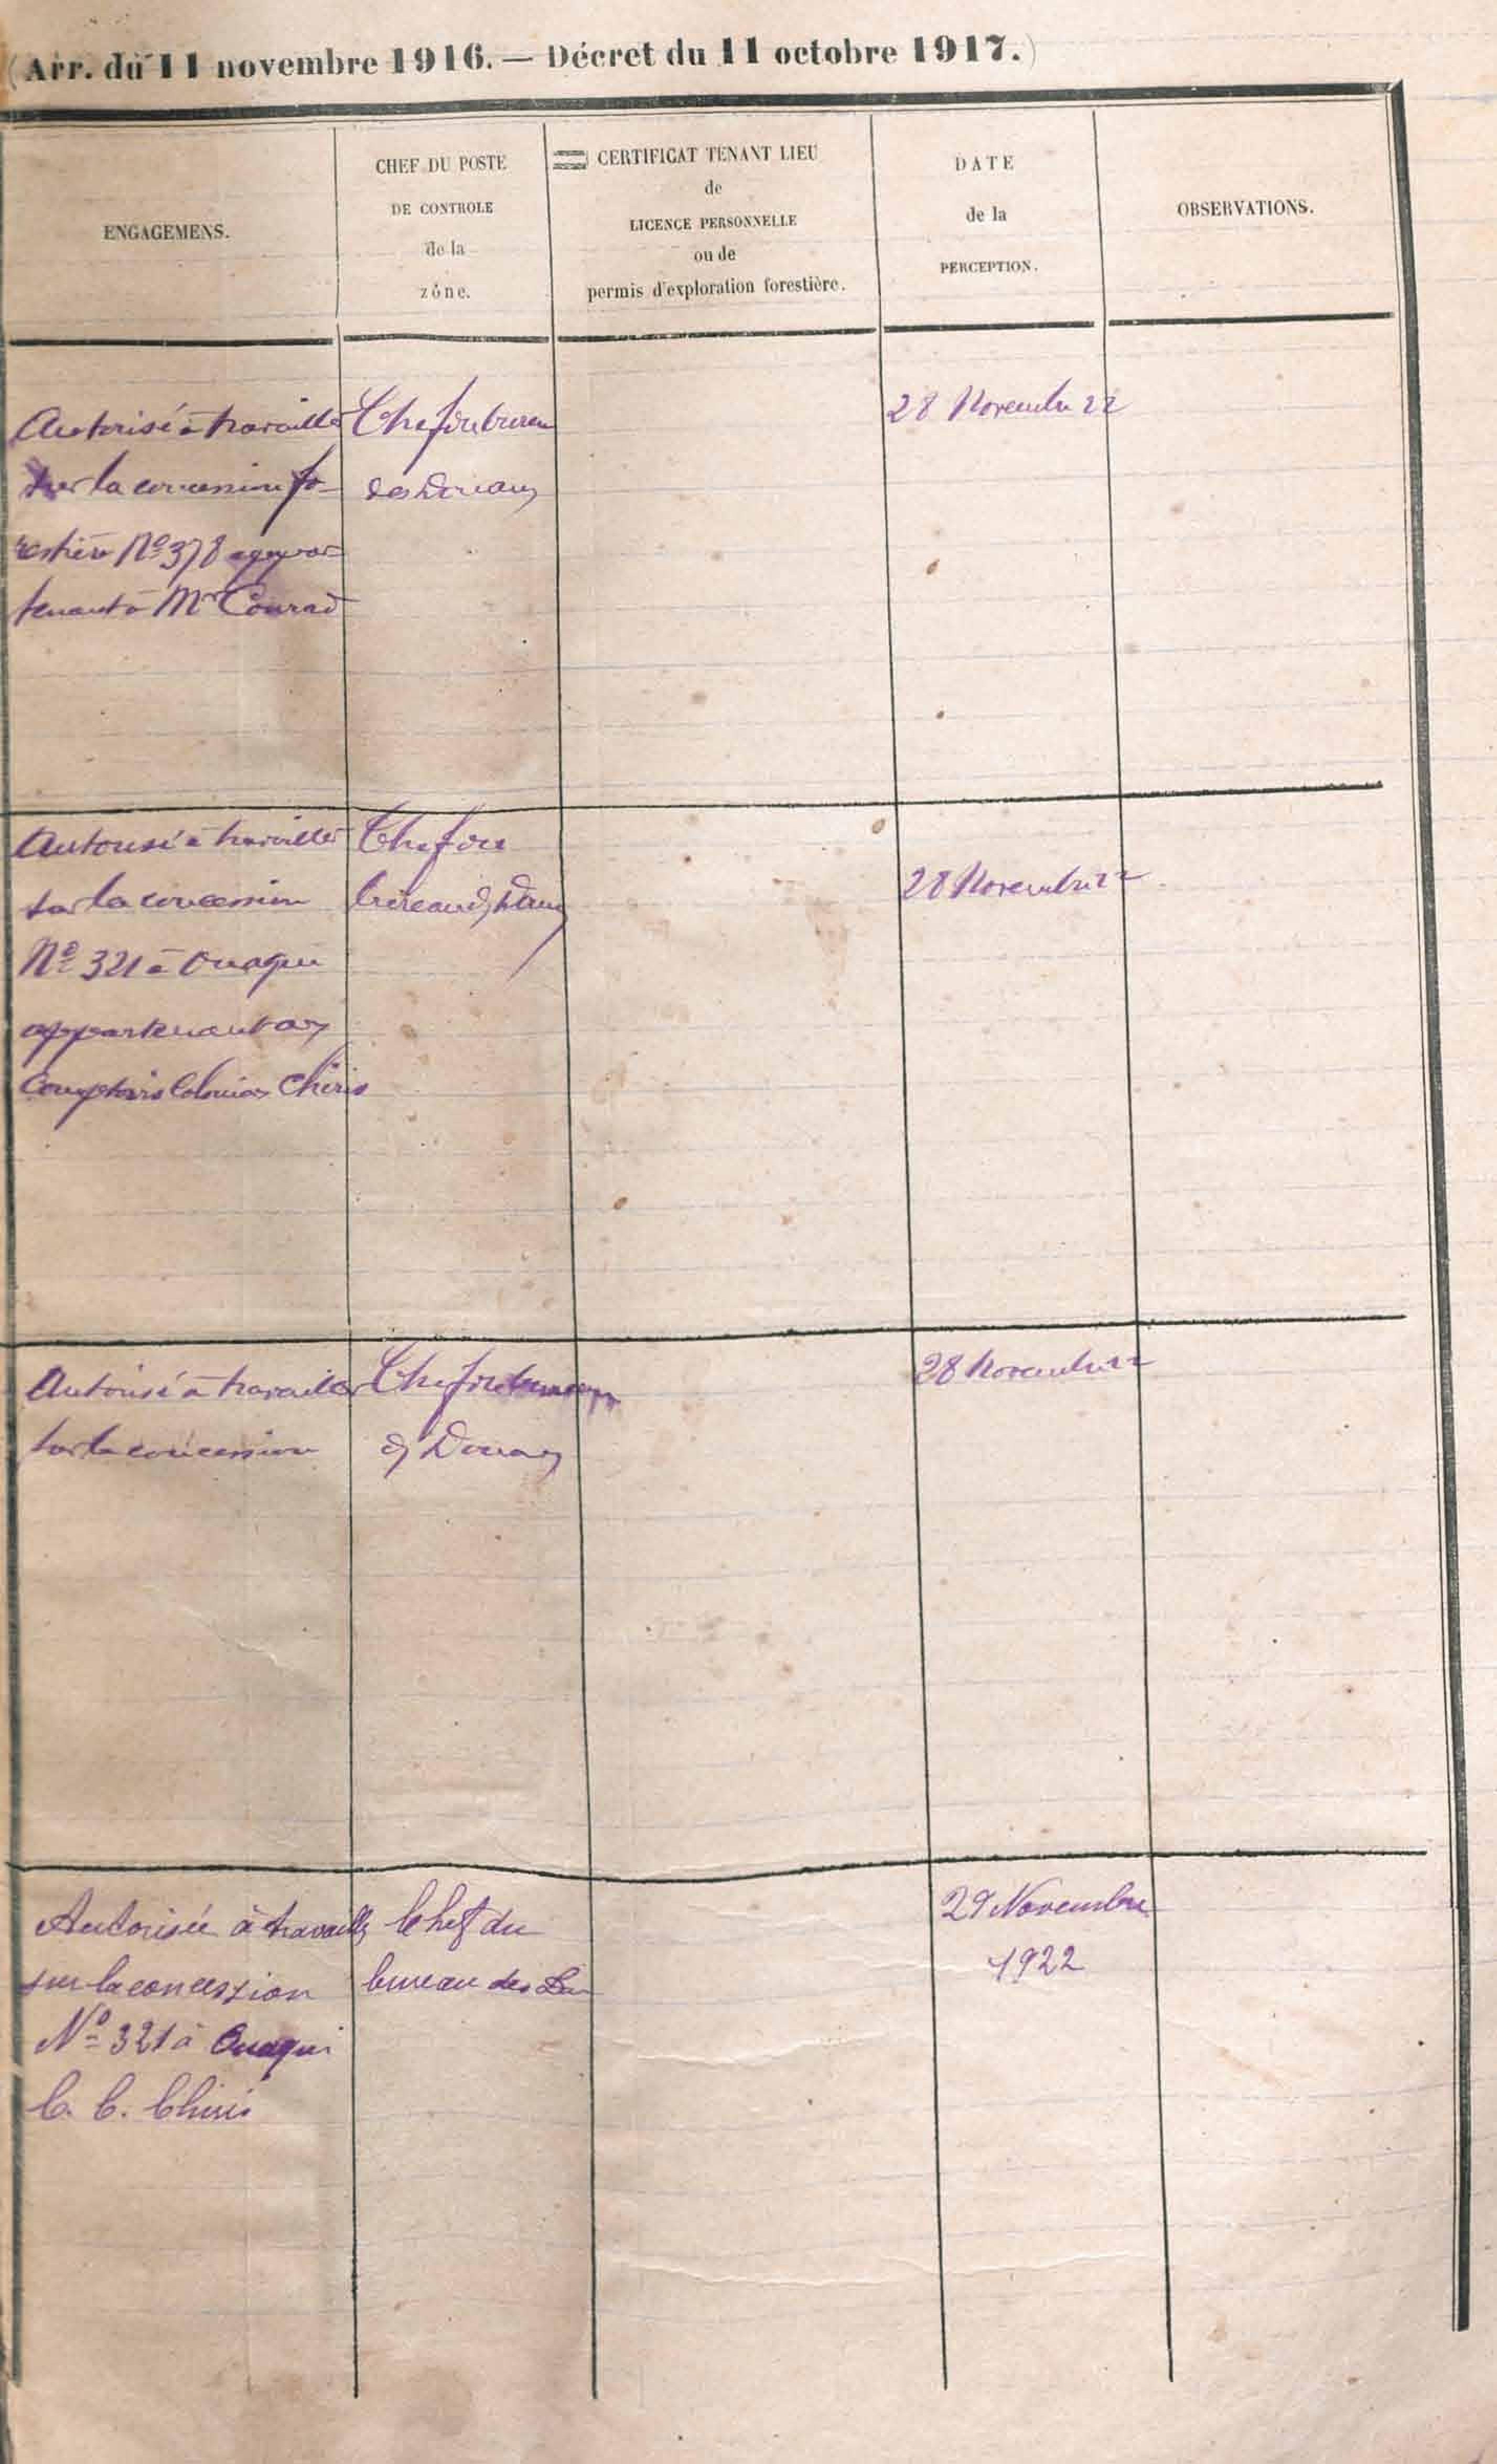 (Arr. du 11 novembre 1916. — Décret du 11 octobre 1917.)
ENGAGEMENS.
CHEF DU POSTE
DE CONTROLE
de la
zône.
CERTIFICAT TENANT LIEU
de
LICENCE PERSONNELLE
ou de
permis d'exploration forestière.
DATE
de la
PERCEPTION.
OBSERVATIONS.
Autorisé à travailler
sur la concession fo-
restière No 378 appar-
tenant à Mr Conrad
Chef du bureau
des Douanes
28 Novembre 22
Autorisé à travailler
sur la concession
No 321 à Ouaqui
appartenant aux
Comptoirs Coloniaux Chiris
Chef du
bureau des Douanes
28 Novembre 22
Autorisé à travailler
sur la concession
Chef du bureau
des Douanes
28 Novembre 22
Autorisée à travailler
sur la concession
No 321 à Ouaqui
C. C. Chiris
Chef du
bureau des Dou
29 Novembre
1922